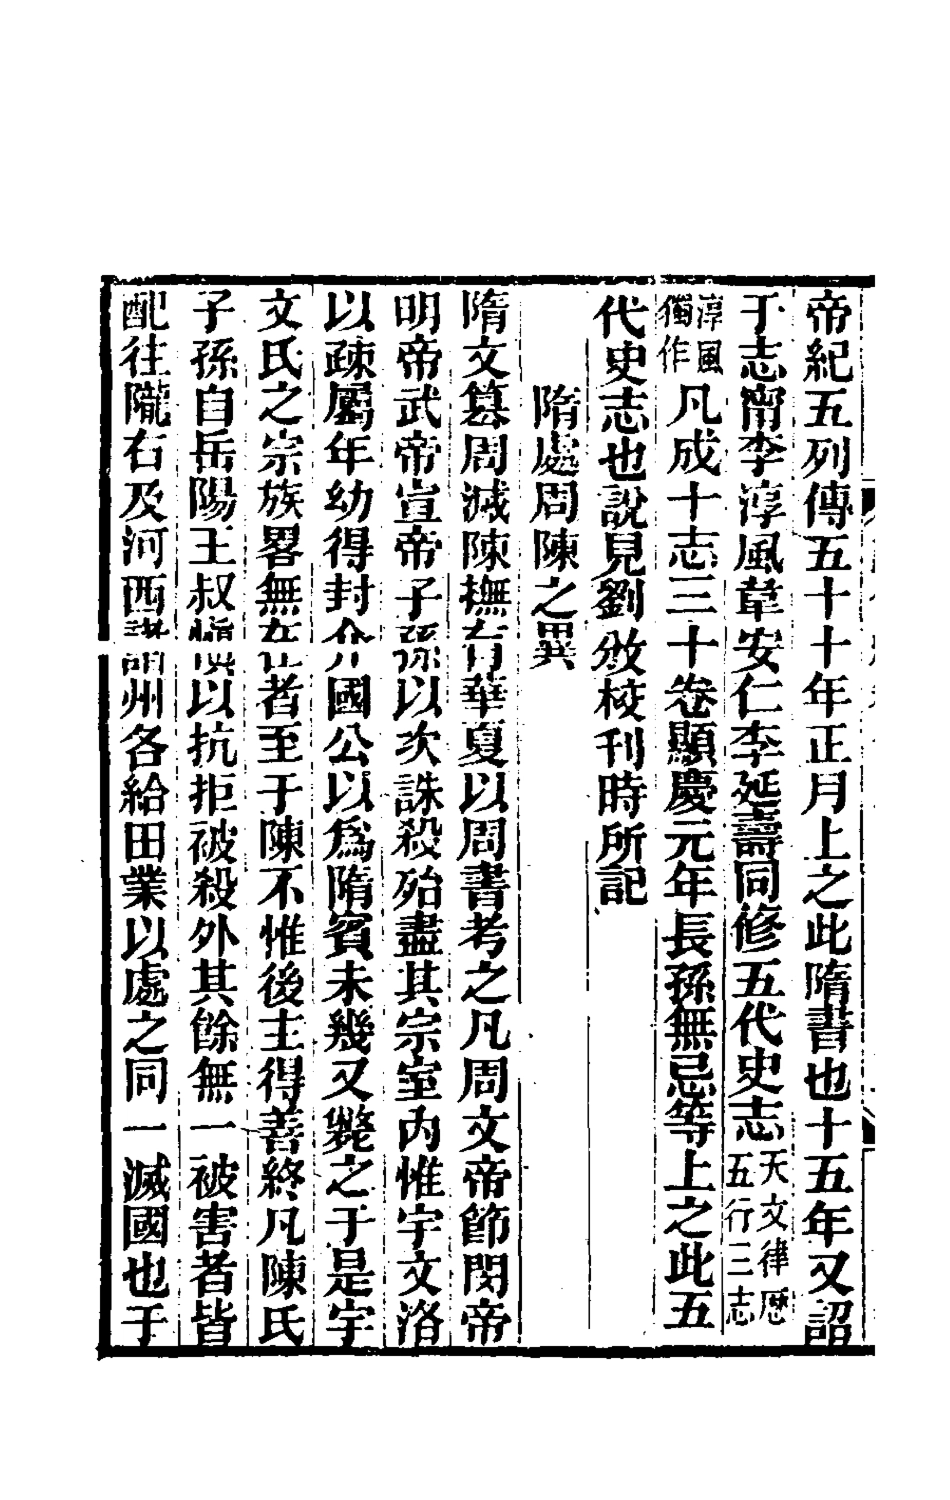 帝紀五列傳五十十年正月上之此隋書也十五年又詔
于志甯李淳風韋安仁李延壽同修五代史志天文律厯五行三志
淳風獨作凡成十志三十卷顯慶元年長孫無忌等上之此五
代史志也說見劉攽校刊時所記
隋處周陳之異
隋文篡周滅陳撫有華夏以周書考之凡周文帝節閔帝
明帝武帝宣帝子孫以次誅殺殆盡其宗室內惟宇文洛
以疎屬年幼得封介國公以爲隋賓未幾又斃之于是宇
文氏之宗族畧無在者至于陳不惟後主得善終凡陳氏
子孫自岳陽王叔愼以抗拒被殺外其餘無一被害者皆
配往隴右及河西諸州各給田業以處之同一滅國也于